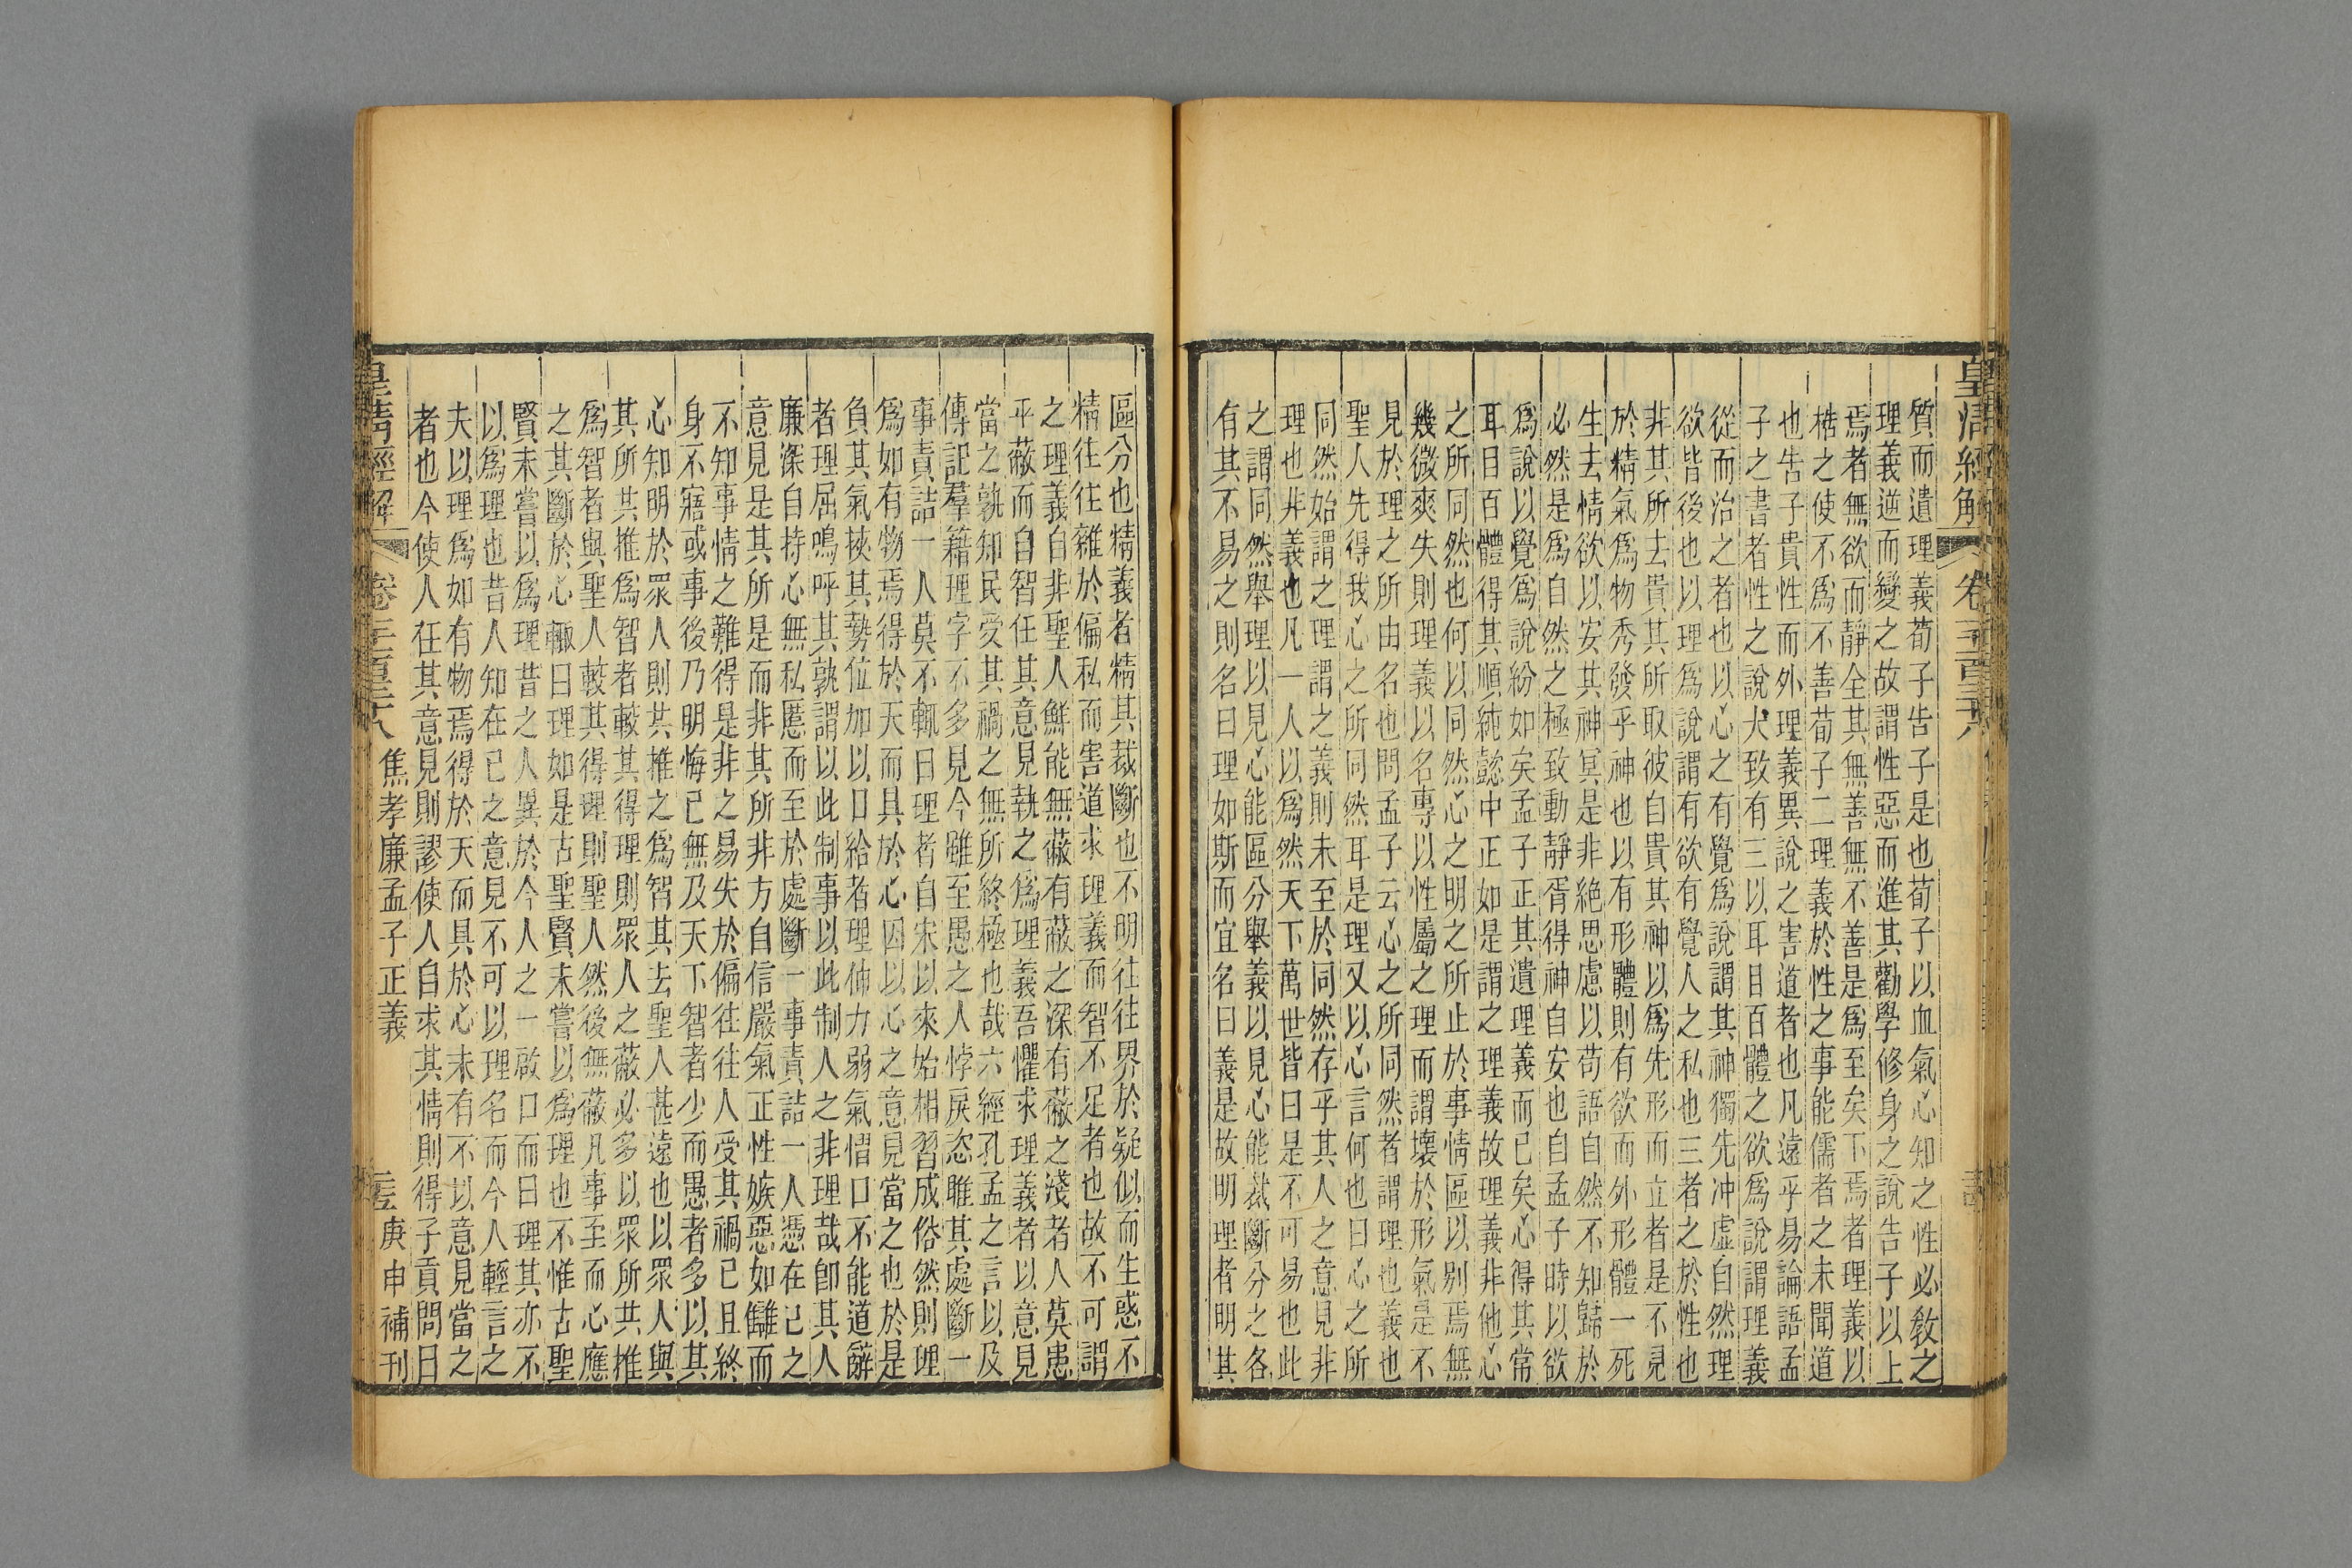 皇清經解
卷
質而遺理義荀子告子是也荀子以血氣心知之性必敎之
理義逆而變之故謂性惡而進其勸學修身之說告子以上
焉者無欲而靜全其無善無不善是爲至矣下焉者理義以
梏之使不爲不善荀子二理義於性之事能儒者之未聞道
也告子貴性而外理義異說之害道者也凡遠乎易論語孟
子之書者性之說大致有三以耳目百體之欲爲說謂理義
從而治之者也以心之有覺爲說謂其神獨先冲虛自然理
欲皆後也以理爲說謂有欲有覺人之私也三者之於性也
非其所去貴其所取彼自貴其神以爲先形而立者是不見
於精氣爲物秀發乎神也以有形體則有欲而外形體一死
生去情欲以安其神冥是非絶思慮以苟語自然不知歸於
必然是爲自然之極致動靜胥得神自安也自孟子時以欲
爲說以覺爲說紛如矣孟子正其遺理義而已矣心得其常
耳目百體得其順純懿中正如是謂之理義故理義非他心
之所同然也何以同然心之明之所止於事情區以别焉無
幾微爽失則理義以名專以性屬之理而謂壞於形氣是不
見於理之所由名也問孟子云心之所同然者謂理也義也
聖人先得我心之所同然耳是理又以心言何也曰心之所
同然始謂之理謂之義則未至於同然存乎其人之意見非
理也非義也凡一人以爲然天下萬世皆曰是不可易也此
之謂同然舉理以見心能區分舉義以見心能裁斷分之各
有其不易之則名曰理如斯而宜名曰義是故明理者明其
區分也精義者精其裁斷也不明往往界於疑似而生惑不
精往往雜於偏私而害道求理義而智不足者也故不可謂
之理義自非聖人鮮能無蔽有蔽之深有蔽之淺者人莫患
乎蔽而自智任其意見執之爲理義吾懼求理義者以意見
當之孰知民受其禍之無所終極也哉六經孔孟之言以及
傳記羣籍理字不多見今雖至愚之人悖戾恣睢其處斷一
事責詰一人莫不輒曰理者自宋以來始相習成俗然則理
爲如有物焉得於天而具於心因以心之意見當之也於是
負其氣挾其勢位加以口給者理伸力弱氣慴口不能道辭
者理屈嗚呼其孰謂以此制事以此制人之非理哉卽其人
廉深自持心無私慝而至於處斷一事責詰一人憑在己之
意見是其所是而非其所非方自信嚴氣正性嫉惡如讎而
不知事情之難得是非之易失於偏往往人受其禍己且終
身不寤或事後乃明悔已無及天下智者少而愚者多以其
心知明於眾人則共推之爲智其去聖人甚遠也以眾人與
其所共推爲智者較其得理則眾人之蔽必多以眾所共推
爲智者與聖人較其得理則聖人然後無蔽凡事至而心應
之其斷於心輒曰理如是古聖賢未嘗以爲理也不惟古聖
賢未嘗以爲理昔之人異於今人之一啟口而曰理其亦不
以爲理也昔人知在己之意見不可以理名而今人輕言之
夫以理爲如有物焉得於天而具於心未有不以意見當之
者也今使人任其意見則謬使人自求其情則得子貢問曰
皇清經解 卷一千一百三十八 焦孝廉孟子正義 庚申補刊